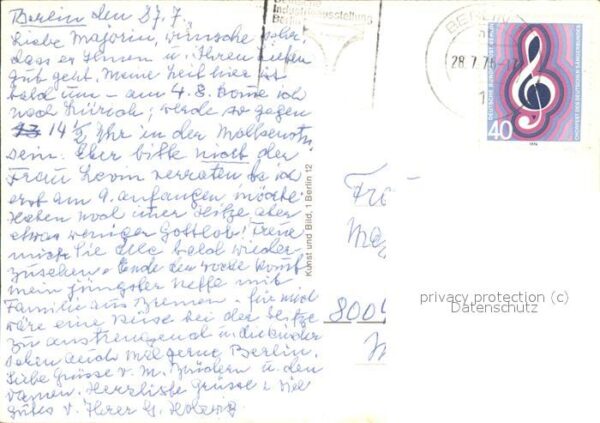 Berlin den 27.7.
Liebe Majorin, wünsche sehr,
dass es Ihnen u. Ihren Lieben
gut geht. Meine Zeit hier ist
bald um - am 4.8. komme ich
nach Zürich, werde so gegen
14 Uhr in der
sein. Aber bitte nicht der
Frau verraten da ich
erst am 9. anfangen möchte.
Haben noch immer Hitze aber
etwas weniger Gottlob! Freue
mich Sie alle bald wieder
zusehen. Ende der Woche kommt
mein jüngster Neffe mit
Familie aus Bremen. Für mich
wäre eine Reise bei der Hitze
zu anstrengend u. die Kinder
sehen auch mal gerne Berlin.
Liebe Grüsse v. m. Brüdern u. den
Damen. Herzliche Grüsse u. viel
Gutes v. Ihrer G.
Kunst und Bild, 1 Berlin 12
Deutsche
Industrieausstellung
Berlin
BERLIN
28.7.76-17
1
DEUTSCHE BUNDESPOST BERLIN
CHORFEST DES DEUTSCHEN SÄNGERBUNDES
40
1976
Frä
Maj
8004
privacy protection (c)
Datenschutz